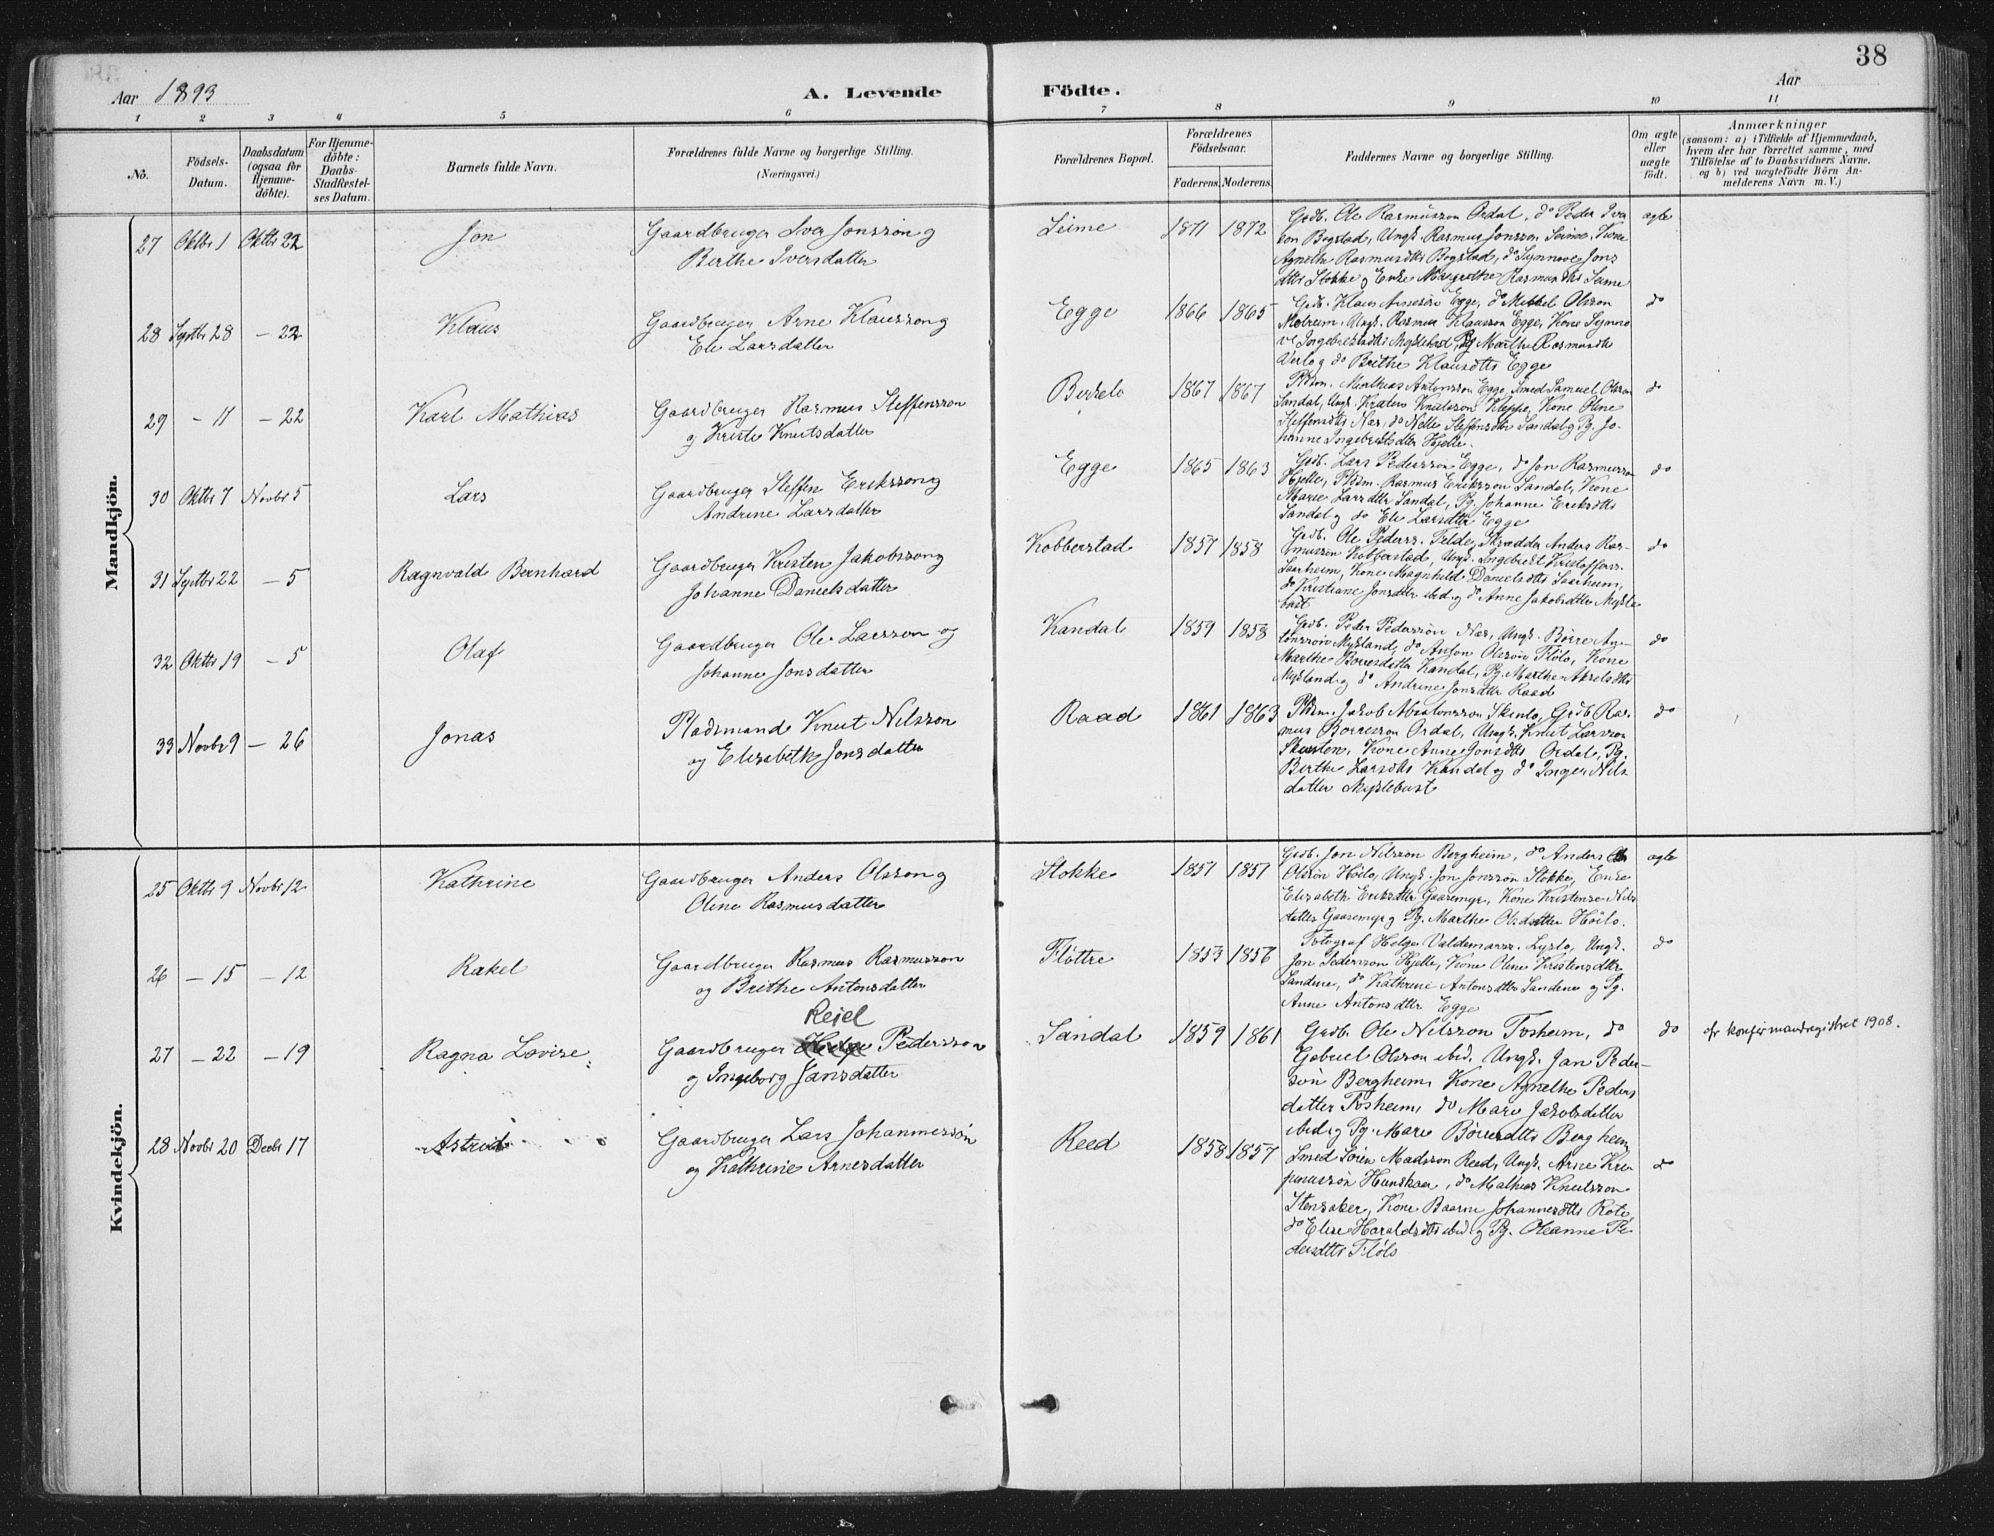 38
Aar 1893
A. Levende
Födte.
Aar
1 2 3 4 5 6 7 8 9 10 11
No.
Födsels-
Datum.
Daabsdatum
(ogsaa för
Hjemme-
döbte).
For Hjemme-
döbte:
Daabs-
Stadfæstel-
ses Datum.
Barnets fulde Navn.
Forældrenes fulde Navne og borgerlige Stilling.
(Næringsvei.)
Forældrenes Bopæl.
Forældrenes
Födselsaar.
Faderens. Moderens.
Faddernes Navne og borgerlige Stilling.
Om ægte
eller
uægte
födt.
Anmærkninger
(saasom: a) i Tilfælde af Hjemmedaab,
hvem der har forrettet samme, med
Tilföielse af to Daabsvidners Navne.
og b) ved uægtefödte Börn An-
melderens Navn m. V.)
Mandkjön.
27 Oktbr 1 Oktbr 22 Jon
Gaardbruger Iver Jonsson og
Berthe Iversdatter
Seime 1871 1872
Grdb. Ole Rasmusson Ordal, do Peder Iver
son Bogstad, Ungk. Rasmus Jonsson Seime, Kone
Agnethe Rasmusdtts Bogstad, do Synneve Jons
dtts Stokke og Enke Margrethe Rasmusdtts Seime
ægte
28 Septbr 28 - 22 Klaus
Gaardbruger Arne Klausson og
Eli Larsdatter
Egge 1866 1865
Grdb. Klaus Arnesön Egge, do Mikkel Olsson
Ungk. Rasmus Klausson Egge, Kone Synno
ve Ingebrigtsdtts Myklebust, Pg Marthe Rasmusdtr
og do Brithe Klausdtts Egge
do
29 - 11 - 22 Karl Mathias
Gaardbruger Rasmus Steffensson
og Kristi Knutsdatter
1867 1867
Pldsm. Mathias Antonsson Egge, Smed Samuel Olsson
Sandal, Ungk. Kristen Knutsson Kleppe, Kone Oline
Steffensdtts Næs, do Nelle Steffensdtr Sandal og Pg. Jo-
hanne Ingebrigtsdtter Hjelle.
do
30 Oktbr 7 Novbr 5 Lars
Gaardbruger Steffen Eriksson og
Andrine Larsdatter
Egge 1865 1863
Grdb. Lars Pedersson Egge, do Jon Rasmusson
Hjelle, Pldsm. Rasmus Eriksson Sandal, Kone
Marie Larsdtter Sandal, Pg. Johanne Eriksdtts
Sandal og do Eli Larsdtter Egge
do
31 Septbr 22 - 5 Ragnvald Bernhard
Gaardbruger Kristen Jakobsson og
Johanne Danielsdatter
Kobberstad 1857 1858
Grdb. Ole Peders. Felde, Skrædder Anders Ras-
musson Kobberstad, Ungk. Ingebrigt Kristoffers.
Saarheim, Kone Magnhild Danielsdtts Saarheim,
do Kristiane Jonsdtter ibid og do Anne Jakobsdtter Mykle
bust
do
32 Oktbr 19 - 5 Olaf
Gaardbruger Ole Larsson og
Johanne Jonsdatter
Kandal 1859 1858
Grdb. Peder Pedersson Næs, Ungk. Börre An-
tonssön Mykland, do Anton Olsson Flölo, Kone
Marthe Börresdatter Kandal, Pg. Marthe Akselsdtts
Mykland og do Andrine Jonsdtter Raad
do
33 Novbr 9 - 26 Jonas
Pladsmand Knut Nilsson
og Elisabeth Jonsdatter
Raad 1861 1863
Pldsm. Jakob Absalonsson Skinlo, Grdb Ras-
mus Börresson Ordal, Ungk. Knut Larsson
Kone Anne Jonsdtts Ordal, Pg.
Berthe Larsdtts Kandal og do Inger Nils
datter Myklebust
do
Kvindekjön.
25 Oktbr 9 Novbr 12 Kathrine
Gaardbruger Anders Olsson og
Oline Rasmusdatter
Stokke 1857 1857
Grdb. Jon Nilsson Bergheim, do Anders
Olsson Höilo, Ungk. Jon Jonsson Stokke, Enke
Elisabeth Eriksdtter Gaaremyr, Kone Kristense Nils
datter Gaaremyr og Pg. Marthe Olsdatter Höilo.
ægte
26 - 15 - 12 Rakel
Gaardbruger Rasmus Rasmusson
og Brithe Antonsdatter
Flöttre 1853 1856
Fotograf Helge Valdemarss. Lyslo, Ungk.
Jon Pedersson Hjelle, Kone Oline Kristensdtter
Sandene, do Kathrine Antonsdtter Sandene og Pg.
Anne Antonsdtter Egge
do
27 - 22 - 19 Ragna Lovise
Reiel
Gaardbruger Pedersson
og Ingeborg Jansdatter
Sandal 1859 1861
Grdb. Ole Nilsson Tosheim, do
Gabriel Olsson ibid. Ungk. Jan Peder-
sön Bergheim, Kone Agnethe Peders
datter Tosheim, do Mari Jakobsdatter
ibid og Pg. Mari Börresdtts Bergheim
do
cfr konfirmandregistret 1908.
28 Novbr 20 Decbr 17 Astrid
Gaardbruger Lars Johannessön
og Kathrine Arnesdatter
Reed 1858 1857
Smed Sören Madsson Reed, Ungk. Arne
do Mathias Knutsson
Stensaker, Kone Johannesdtts
do Elise Haraldsdtts ibid og Pg. Oleanne Pe
dersdtts Flölo
do